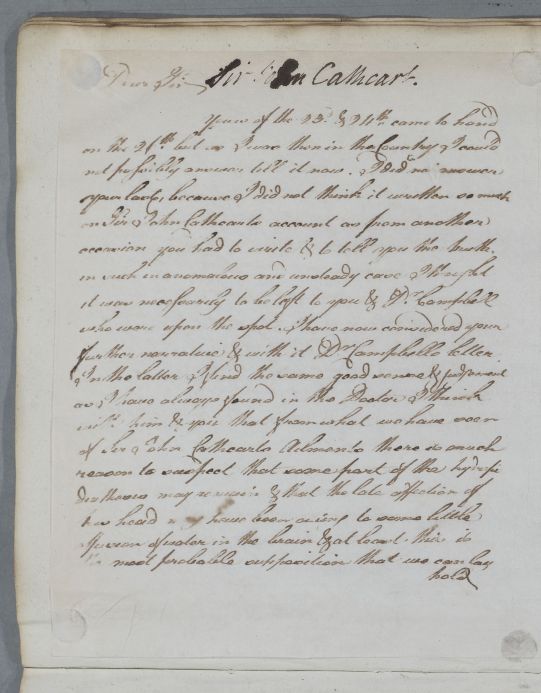 Dear Sir Sir John Cathcart.
Yours of the 23d. & 24th. came to hand
on the 26th. but as I was then in the Country I could
not possibly answer till it now. I did not answer
your last, because I did not think it written so much
on Sir John Cathcarts account as from another
occasion you had to write & to tell you the truth
in such an anomalous and unsteady case I thought
it was necessary to be left to you & Dr Campbell
who were upon the spot. I have now considered your
further narrative & with it Dr Campbells letter.
In the latter I find the same good sense & judgement
as I have always found in the Doctor. I think
with him & you that from what we have seen
of Sir John Cathcarts Ailments there is much
reason to suspect that some part of the hydropi
diathesis may remain & that the late affection of
his head may have been owing to some little
effusion of water in the brain & at least this is
the most probable supposition that we can lay
hold